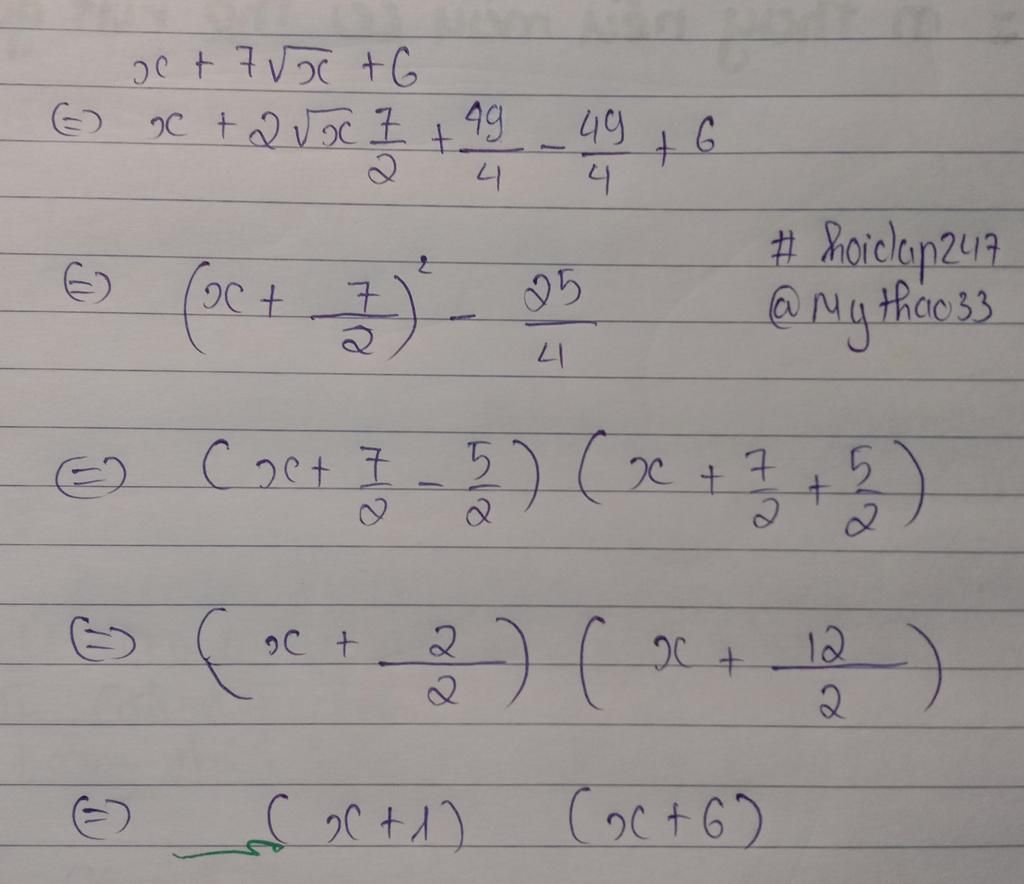 x + 7√x + 6
⇔ x + 2√x 7/2 + 49/4 - 49/4 + 6
⇔ (x + 7/2)² - 25/4
# hoidap247
@Mythao33
⇔ (x + 7/2 - 5/2) (x + 7/2 + 5/2)
⇔ (x + 2/2) (x + 12/2)
⇔ (x + 1) (x + 6)